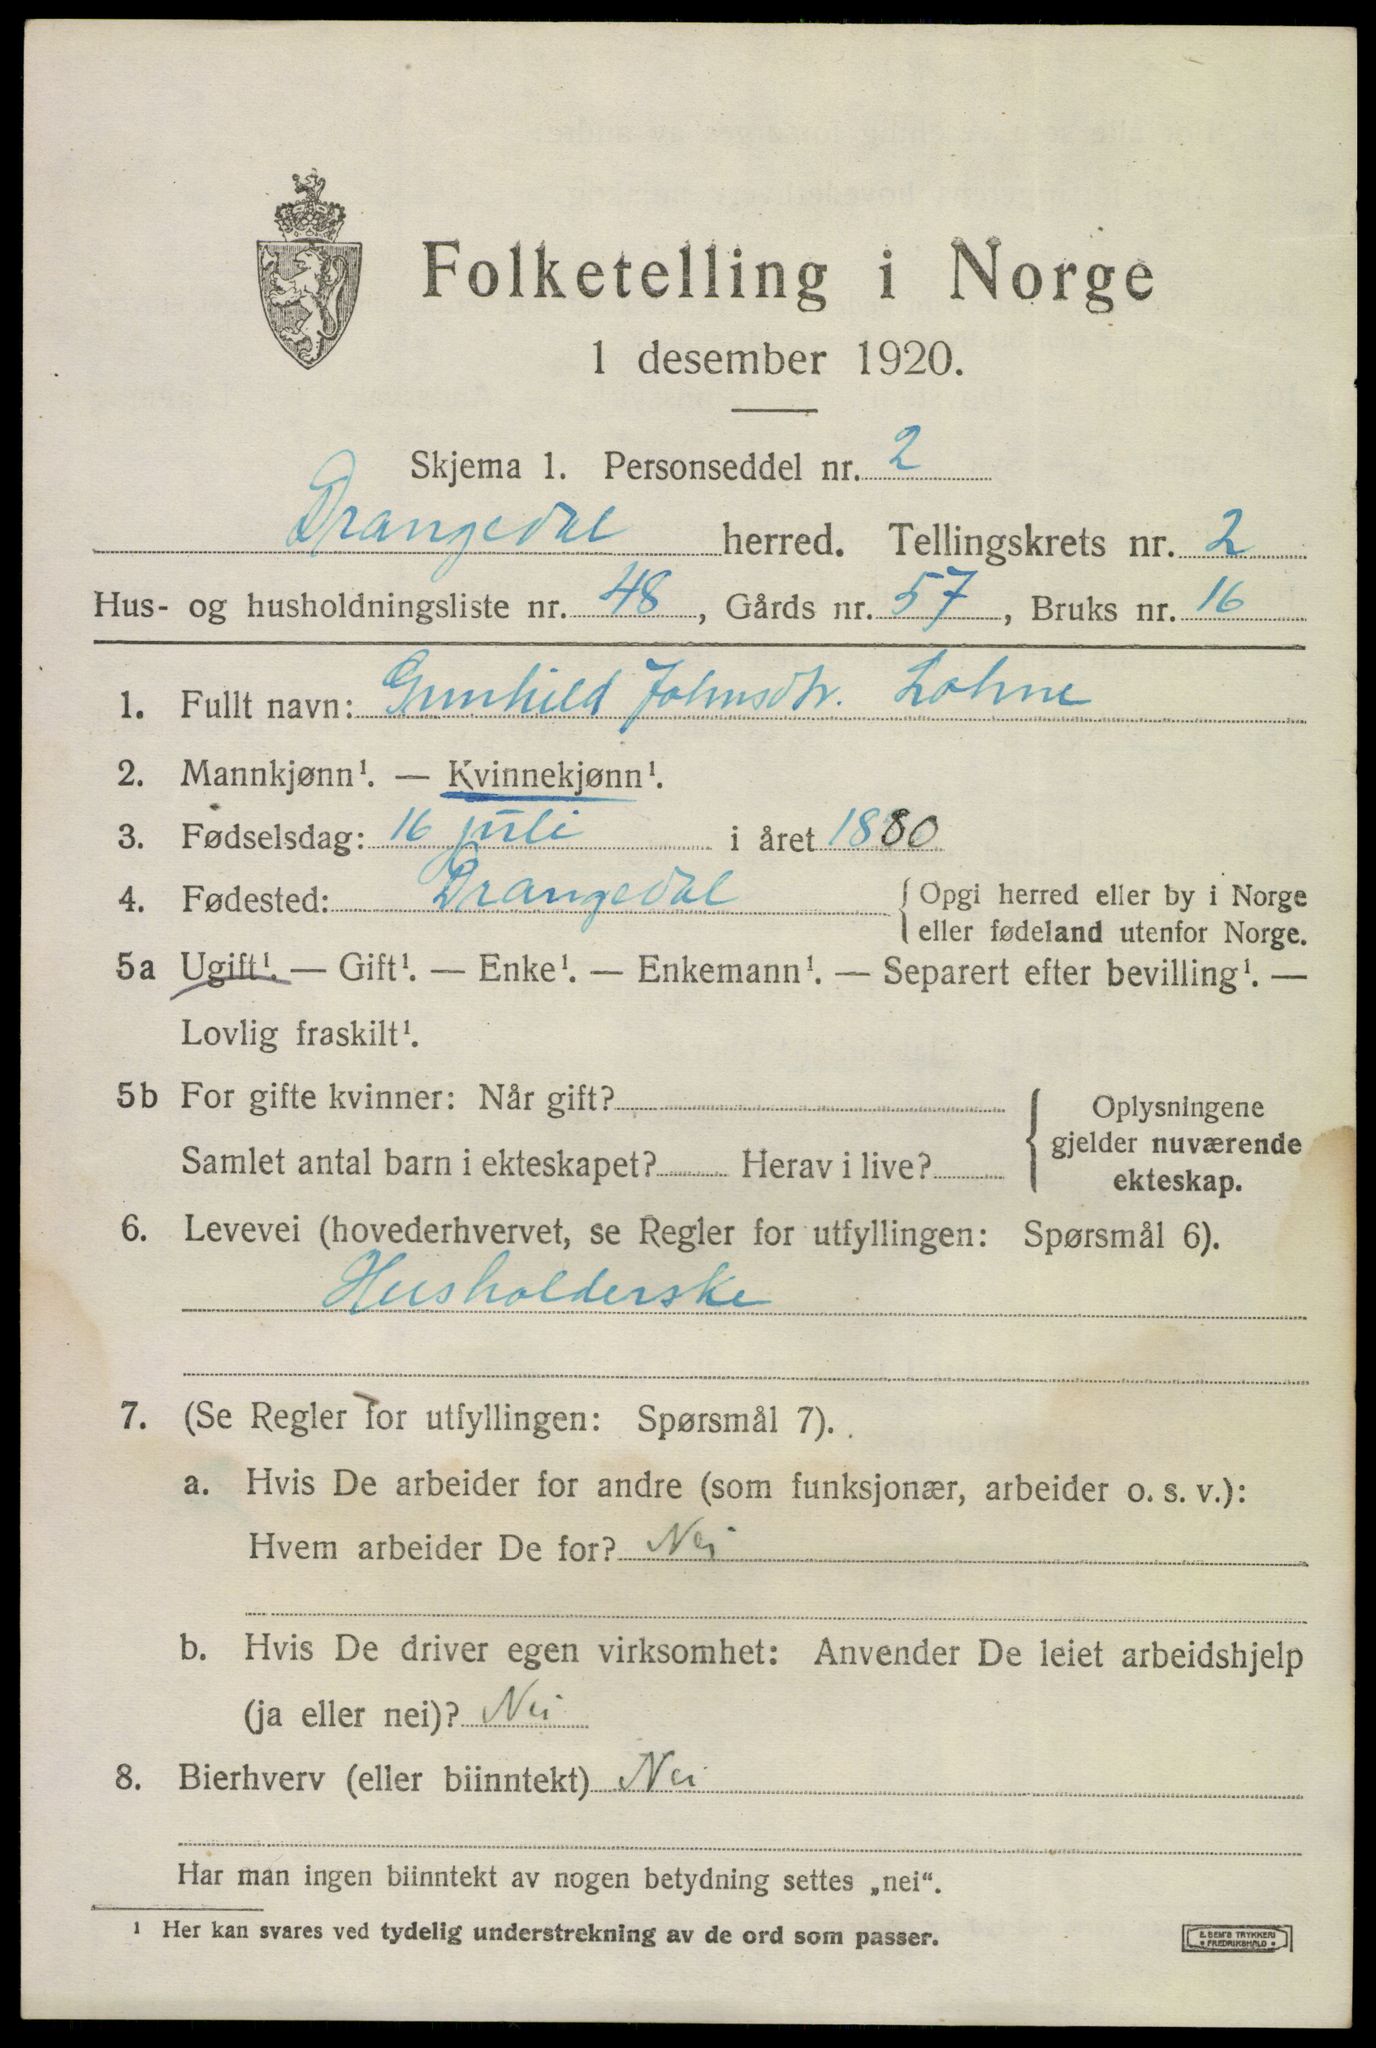 Folketelling i Norge
1 desember 1920.
Skjema 1. Personseddel nr. 2
Drangedal herred. Tellingskrets nr. 2
Hus- og husholdningsliste nr. 48, Gårds nr. 57, Bruks nr. 16
1. Fullt navn: Gunhild Johnsdtr. Lohne
2. Mannkjønn¹. — Kvinnekjønn¹.
3. Fødselsdag: 16 juli i året 1880
4. Fødested: Drangedal { Opgi herred eller by i Norge
eller fødeland utenfor Norge.
5a Ugift¹. — Gift¹. — Enke¹. — Enkemann¹. — Separert efter bevilling¹. —
Lovlig fraskilt¹.
5b For gifte kvinner: Når gift?
Samlet antal barn i ekteskapet? Herav i live?
Oplysningene
gjelder nuværende
ekteskap.
6. Levevei (hovederhvervet, se Regler for utfyllingen: Spørsmål 6).
Husholderske
7. (Se Regler for utfyllingen: Spørsmål 7).
a. Hvis De arbeider for andre (som funksjonær, arbeider o. s. v.):
Hvem arbeider De for? Nei
b. Hvis De driver egen virksomhet: Anvender De leiet arbeidshjelp
(ja eller nei)? Nei
8. Bierhverv (eller biinntekt) Nei
Har man ingen biinntekt av nogen betydning settes „nei“.
¹ Her kan svares ved tydelig understrekning av de ord som passer.
E. SEM'S TRYKKERI
• FREDRIKSHALD •